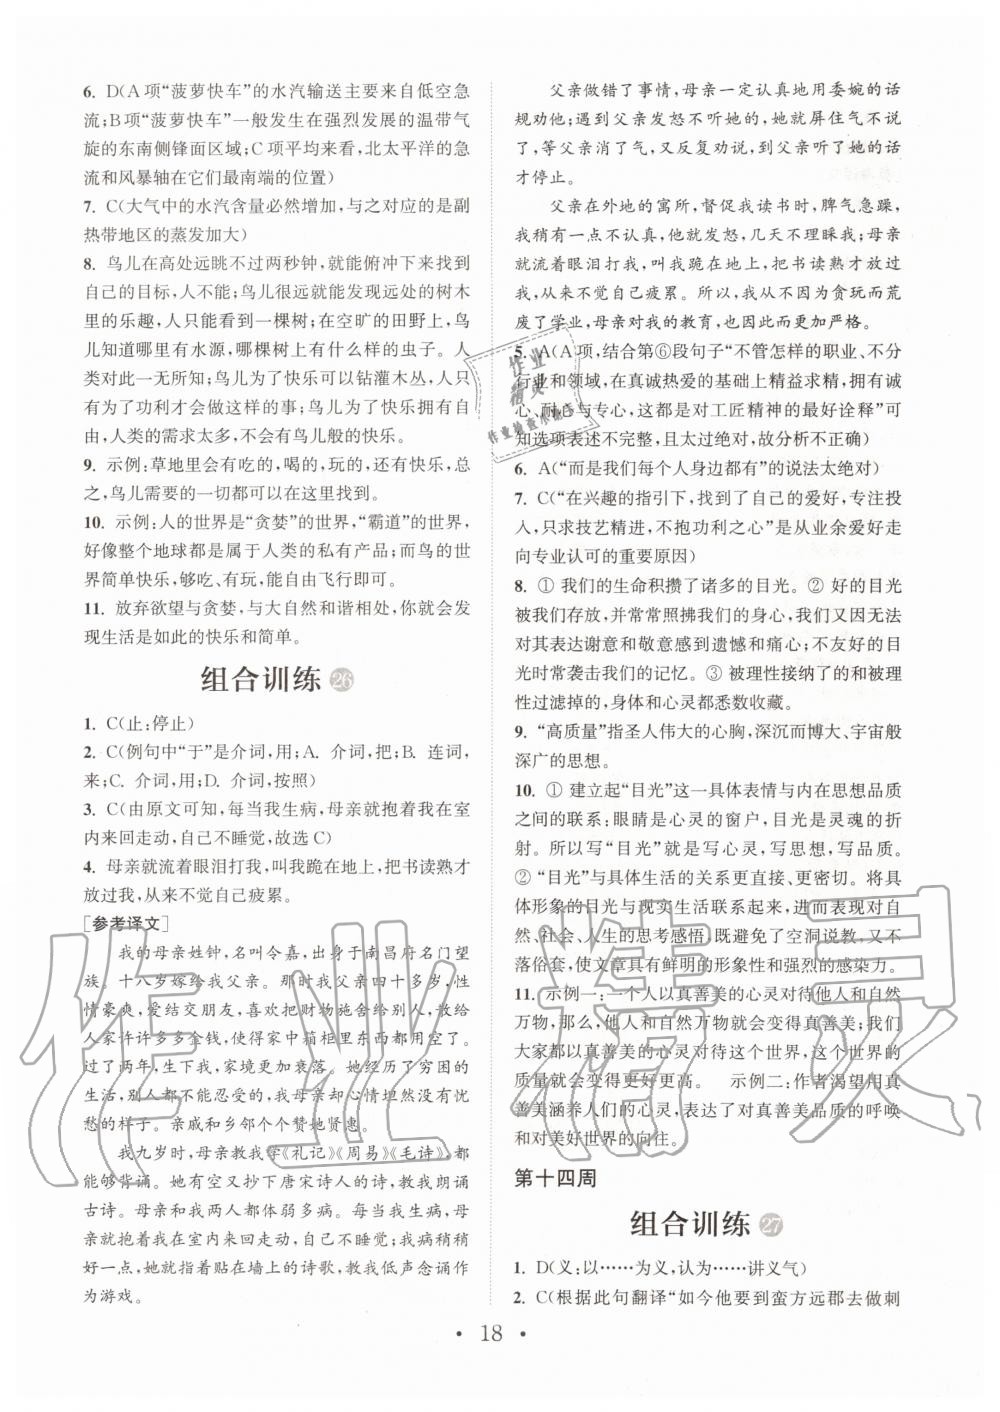 6. D(A 项“菠萝快车”的水汽输送主要来自低空急
流;B项“菠萝快车”一般发生在强烈发展的温带气
旋的东南侧锋面区域;C 项平均来看,北太平洋的急
流和风暴轴在它们最南端的位置)
7. C(大气中的水汽含量必然增加,与之对应的是副
热带地区的蒸发加大)
8. 鸟儿在高处远眺不过两秒钟,就能俯冲下来找到
自己的目标,人不能;鸟儿很远就能发现远处的树木
里的乐趣,人只能看到一棵树;在空旷的田野上,鸟
儿知道哪里有水源,哪棵树上有什么样的虫子。人
类对此一无所知;鸟儿为了快乐可以钻灌木丛,人只
有为了功利才会做这样的事;鸟儿为了快乐拥有自
由,人类的需求太多,不会有鸟儿般的快乐。
9. 示例:草地里会有吃的,喝的,玩的,还有快乐,总
之,鸟儿需要的一切都可以在这里找到。
10. 示例:人的世界是“贪婪”的世界,“霸道”的世界,
好像整个地球都是属于人类的私有产品;而鸟的世
界简单快乐,够吃、有玩,能自由飞行即可。
11. 放弃欲望与贪婪,与大自然和谐相处,你就会发
现生活是如此的快乐和简单。
组合训练 26
1. C(止:停止)
2. C(例句中“于”是介词,用;A. 介词,把;B. 连词,
来;C. 介词,用;D. 介词,按照)
3. C(由原文可知,每当我生病,母亲就抱着我在室
内来回走动,自己不睡觉,故选 C)
4. 母亲就流着眼泪打我,叫我跪在地上,把书读熟才
放过我,从来不觉自己疲累。
[参考译文]
我的母亲姓钟,名叫令嘉,出身于南昌府名门望
族。十八岁嫁给我父亲。当时我父亲四十多岁,性
情豪爽,爱结交朋友,喜欢把财物施舍给别人,散给
人家许许多多金钱,使得家中箱柜里东西都用完了。
过了两年,生下我,家境更加衰落。她经历了穷困的
生活,别人都不能忍受的,我母亲却心情坦然没有忧
愁的样子。亲戚和乡邻个个赞她贤惠。
我九岁时,母亲教我学《礼记》《周易》《毛诗》,都
能够背诵。她有空又抄下唐宋诗人的诗,教我朗诵
古诗。母亲和我两人都体弱多病。每当我生病,母
亲就抱着我在室内来回走动,自己不睡觉;我病稍稍
好一点,她就指着贴在墙上的诗歌,教我低声念诵作
为游戏。
父亲做错了事情,母亲一定认真地用委婉的话
规劝他;遇到父亲发怒不听她的,她就屏住气不说
了,等父亲消了气,又反复劝说,到父亲听了她的话
才停止。
父亲在外地的寓所,督促我读书时,脾气急躁,
我稍有一点不认真,他就发怒,几天不理睬我;母亲
就流着眼泪打我,叫我跪在地上,把书读熟才放过
我,从来不觉自己疲累。所以,我从不因为贪玩而荒
废了学业,母亲对我的教育,也因此而更加严格。
5. A(A 项,结合第⑥段句子“不管怎样的职业、不分
行业和领域,在真诚热爱的基础上精益求精,拥有诚
心、耐心与专心,这都是对工匠精神的最好诠释”可
知选项表述不完整,且太过绝对,故分析不正确)
6. A(“而是我们每个人身边都有”的说法太绝对)
7. C(“在兴趣的指引下,找到了自己的爱好,专注投
入,只求技艺精进,不抱功利之心”是从业余爱好走
向专业认可的重要原因)
8. ① 我们的生命积攒了诸多的目光。② 好的目光
被我们存放,并常常照拂我们的身心,我们又因无法
对其表达谢意和敬意感到遗憾和痛心;不友好的目
光时常袭击我们的记忆。③ 被理性接纳了的和被理
性过滤掉的,身体和心灵都悉数收藏。
9. “高质量”指圣人伟大的心胸,深沉而博大、宇宙般
深广的思想。
10. ① 建立起“目光”这一具体表情与内在思想品质
之间的联系:眼睛是心灵的窗户,目光是灵魂的折
射。所以写“目光”就是写心灵,写思想,写品质。
② “目光”与具体生活的关系更直接、更密切。将具
体形象的目光与现实生活联系起来,进而表现对自
然、社会、人生的思考感悟,既避免了空洞说教,又不
落俗套,使文章具有鲜明的形象性和强烈的感染力。
11. 示例一:一个人以真善美的心灵对待他人和自然
万物,那么,他人和自然万物就会变得真善美;我们
大家都以真善美的心灵对待这个世界,这个世界的
质量就会变得更好更高。 示例二:作者渴望用真
善美涵养人们的心灵,表达了对真善美品质的呼唤
和对美好世界的向往。
第十四周
组合训练 27
1. D(义:以……为义,认为……讲义气)
2. C(根据此句翻译“如今他要到蛮方远郡去做刺
• 18 •
作业精灵
作业
精灵
作业检查小帮手